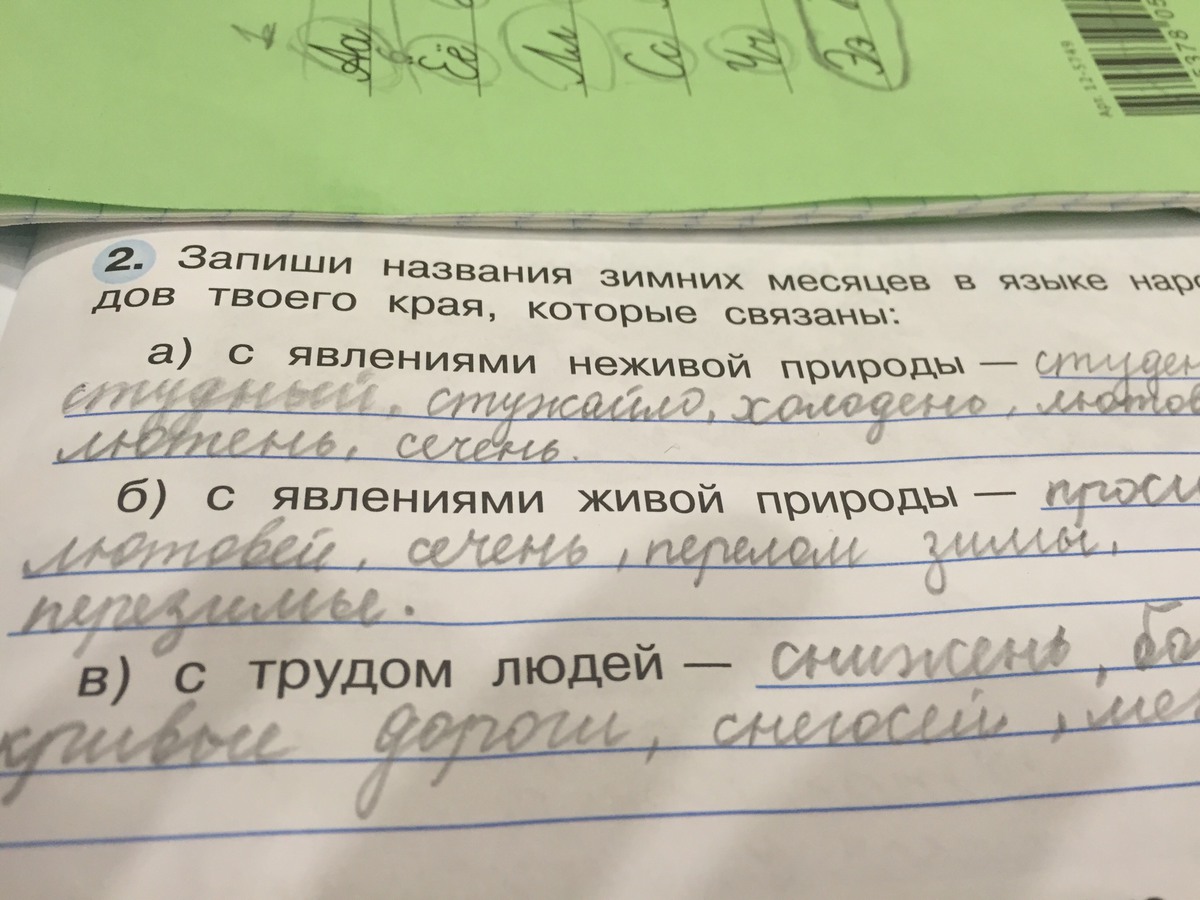 1
Аа
Ёё
Лл
Сс
Чч
Ээ
Арт. 12-5749
2. Запиши названия зимних месяцев в языке наро
дов твоего края, которые связаны:
а) с явлениями неживой природы — студен
студный, стужайло, холодень, лютов
лютень, сечень.
б) с явлениями живой природы — проси
лютовей, сечень, перелом зимы,
перезимье.
в) с трудом людей — снижень, бо
кривые дороги, снегосей, ме